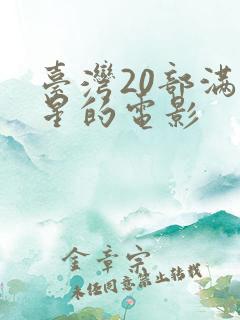 臺灣20部滿
星的電影
金章宗
未经同意禁止转载